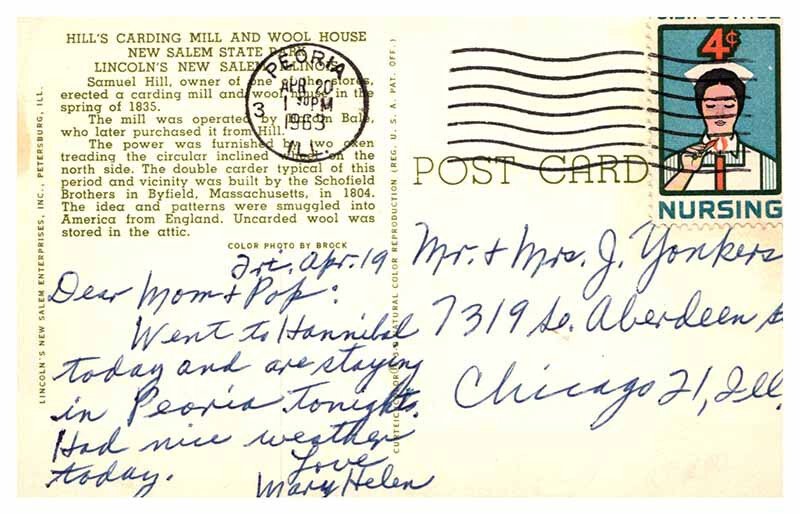 HILL'S CARDING MILL AND WOOL HOUSE
NEW SALEM STATE PARK
LINCOLN'S NEW SALEM, ILLINOIS
Samuel Hill, owner of one of the stores,
erected a carding mill and wool house in the
spring of 1835.
The mill was operated by Bale,
who later purchased it from Hill.
The power was furnished by two oxen
treading the circular inclined wheel on the
north side. The double carder typical of this
period and vicinity was built by the Schofield
Brothers in Byfield, Massachusetts, in 1804.
The idea and patterns were smuggled into
America from England. Uncarded wool was
stored in the attic.
COLOR PHOTO BY BROCK
LINCOLN'S NEW SALEM ENTERPRISES, INC., PETERSBURG, ILL.
PEORIA
APR 20
1 30 PM
1963
ILL.
3
NATURAL COLOR REPRODUCTION (REG. U. S. A. PAT. OFF.)
POST CARD
4¢
NURSING
Fri. Apr. 19
Dear Mom & Pop:
Went to Hannibal
today and are staying
in Peoria tonight.
Had nice weather
today.
Love
Mary Helen
Mr. & Mrs. J. Yonkers
7319 So. Aberdeen
Chicago 21, Ill.